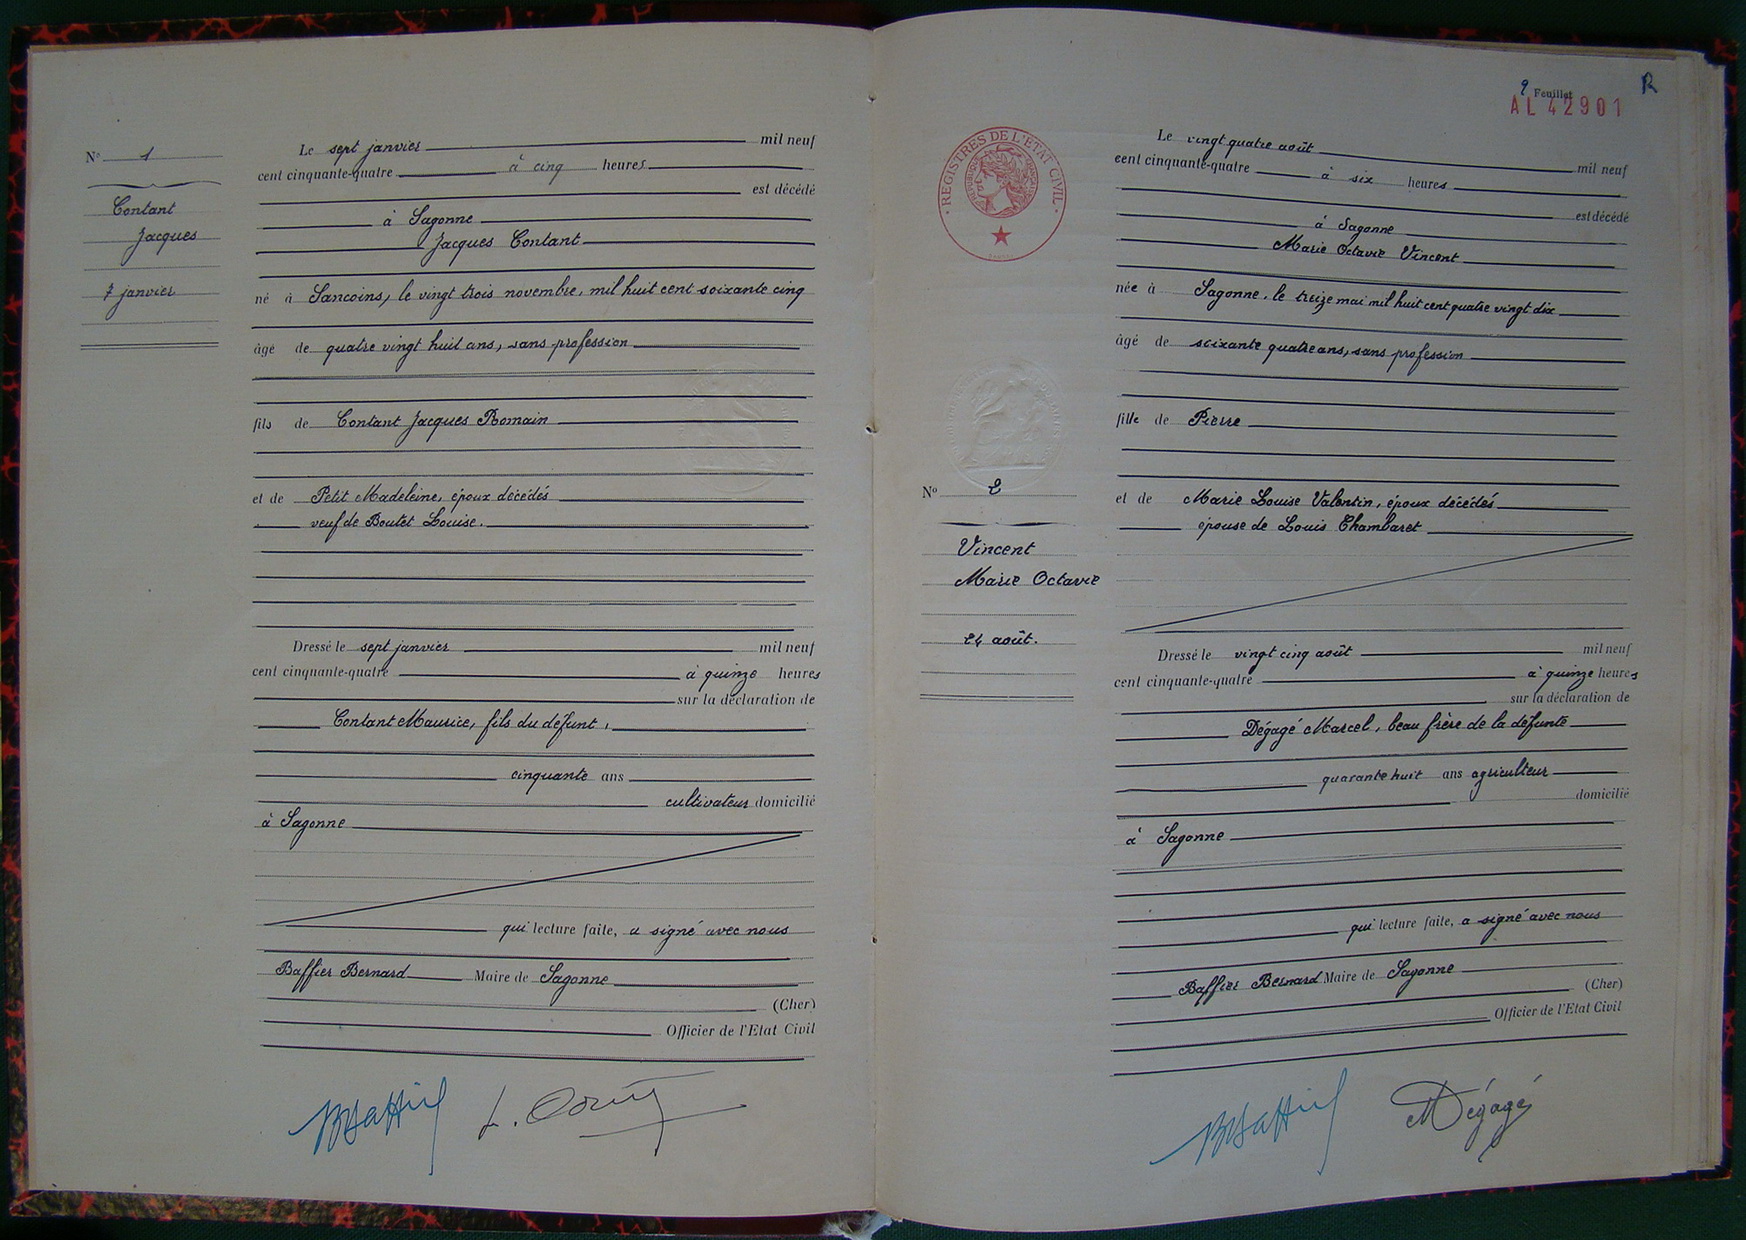 N° 1
Contant
Jacques
7 janvier
Le sept janvier mil neuf
cent cinquante-quatre à cinq heures
est décédé
à Sagonne
Jacques Contant
né à Sancoins, le vingt trois novembre, mil huit cent soixante cinq
âgé de quatre vingt huit ans, sans profession
fils de Contant Jacques Romain
et de Petit Madeleine, époux décédés
veuf de Boutet Louise.
Dressé le sept janvier mil neuf
cent cinquante-quatre à quinze heures
sur la déclaration de
Contant Maurice, fils du défunt,
cinquante ans
cultivateur domicilié
à Sagonne
qui lecture faite, a signé avec nous
Baffier Bernard Maire de Sagonne
(Cher)
Officier de l'Etat Civil
2 Feuillet
R
AL 42901
REGISTRES DE L'ETAT CIVIL
Le vingt quatre août mil neuf
cent cinquante-quatre à six heures
est décédé
à Sagonne
Marie Octavie Vincent
née à Sagonne, le treize mai mil huit cent quatre vingt dix
âgé de soixante quatre ans, sans profession
fille de Pierre
N° 2
Vincent
Marie Octavie
24 août.
et de Marie Louise Valentin, époux décédés
épouse de Louis Chambaret
Dressé le vingt cinq août mil neuf
cent cinquante-quatre à quinze heures
sur la déclaration de
Dégagé Marcel, beau frère de la défunte
quarante huit ans agriculteur
domicilié
à Sagonne
qui lecture faite, a signé avec nous
Baffier Bernard Maire de Sagonne
(Cher)
Officier de l'Etat Civil
M Dégagé